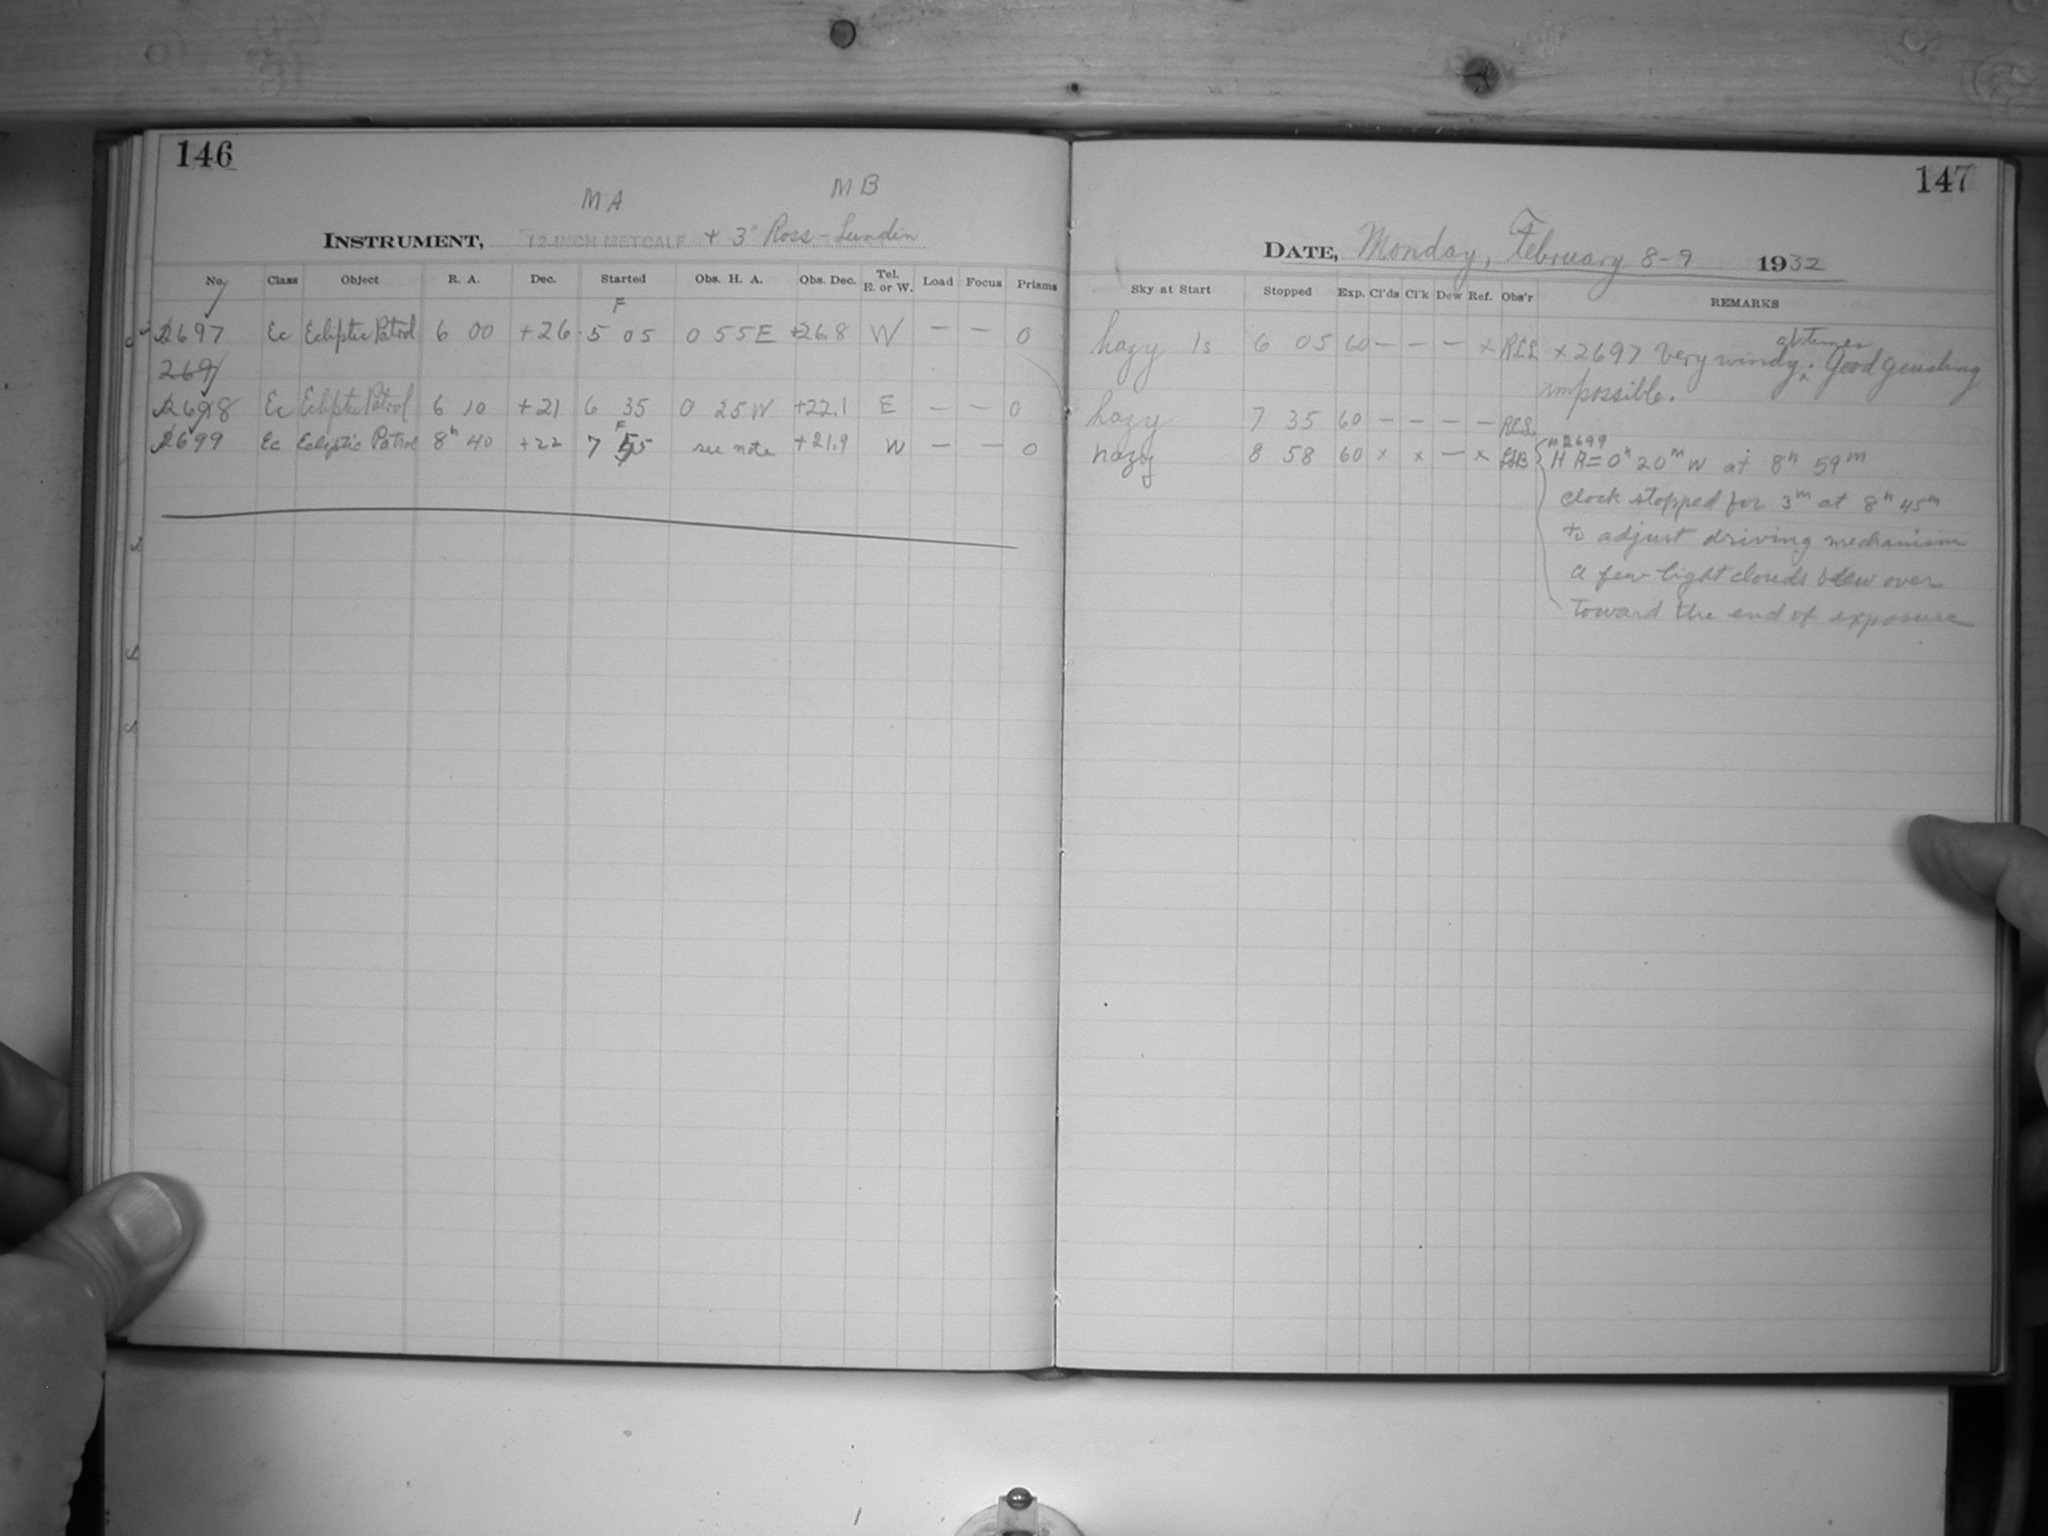 146
MA MB
INSTRUMENT, 12-INCH METCALF + 3" Ross-Lundin
No. Class Object R. A. Dec. Started Obs. H. A. Obs. Dec. Tel. E. or W. Load Focus Prisms
F
2697 Ec Ecliptic Patrol 6 00 +26 5 05 0 55 E +26.8 W — — 0
269
2698 Ec Ecliptic Patrol 6 10 +21 6 35 0 25 W +22.1 E — — 0
F
2699 Ec Ecliptic Patrol 8h 40 +22 7 55 see note +21.9 W — — 0
147
DATE, Monday, February 8-9 1932
Sky at Start Stopped Exp. Cl'ds Cl'k Dew Ref. Obs'r REMARKS
hazy 1s 6 05 60 — — — x x 2697 Very windy at times. Good guiding
impossible.
hazy 7 35 60 — — — —
hazy 8 58 60 x x — x n 2699
HA = 0h 20m W at 8h 59m
clock stopped for 3m at 8h 45m
to adjust driving mechanism
a few light clouds blew over
toward the end of exposure